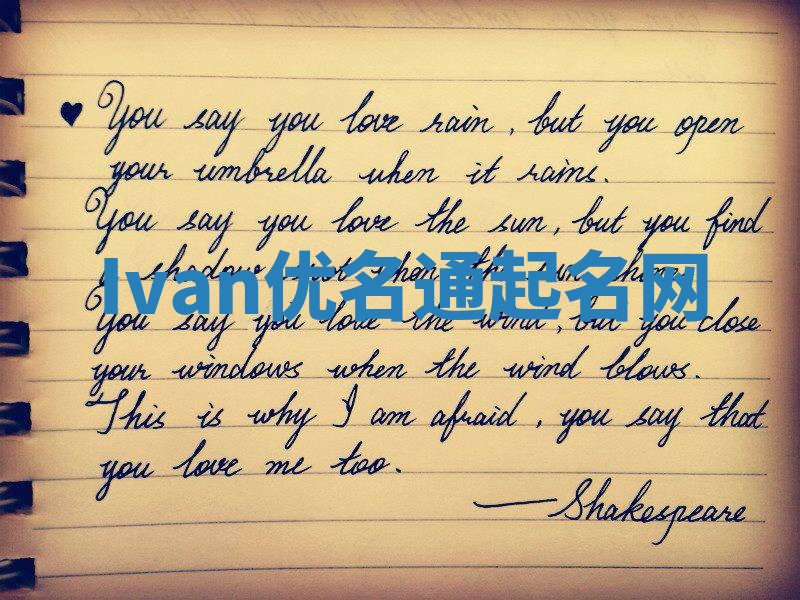 ♥ You say you love rain, but you open
your umbrella when it rains.
You say you love the sun, but you find
a shadow spot when the sun shines.
Ivan优名通起名网
You say you love the wind, but you close
your windows when the wind blows.
This is why I am afraid, you say that
you love me too.
—Shakespeare